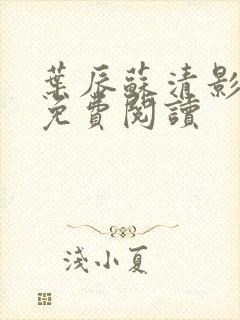 葉辰蘇清影
免費閱讀
淺小夏